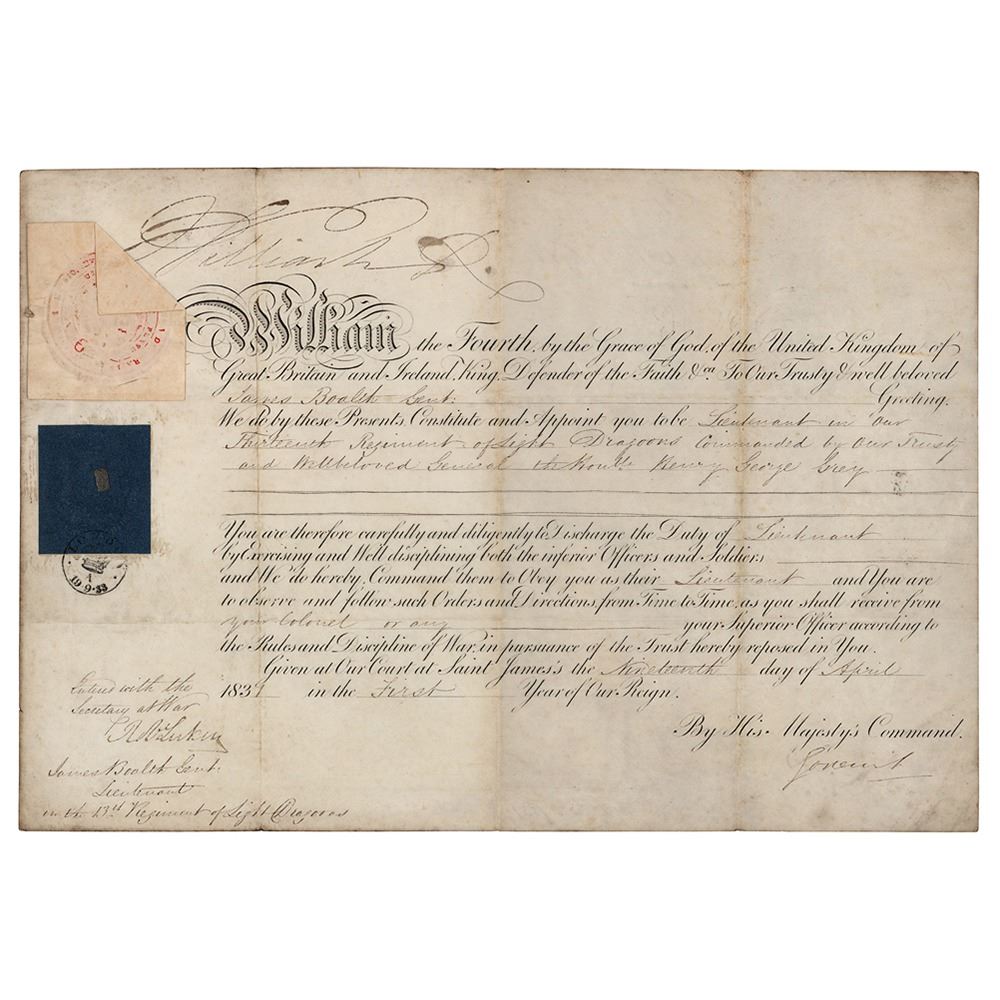 William R
William the Fourth, by the Grace of God, of the United Kingdom of
Great Britain and Ireland, King, Defender of the Faith &ca. To Our Trusty & well beloved
James Boalth Gent: Greeting.
We do by these Presents, Constitute and Appoint you to be Lieutenant in Our
Thirteenth Regiment of Light Dragoons Commanded by Our Trusty
and Wellbeloved General Henry George Grey
You are therefore carefully and diligently to Discharge the Duty of Lieutenant
by Exercising and Well disciplining both the inferior Officers and Soldiers
and We do hereby Command them to Obey you as their Lieutenant and You are
to observe and follow such Orders and Directions, from Time to Time, as you shall receive from
your Colonel or any your Superior Officer according to
the Rules and Discipline of War, in pursuance of the Trust hereby reposed in You.
Given at Our Court at Saint James's the Nineteenth day of April
1831 in the First Year of Our Reign.
By His Majesty's Command.
Entered with the
Secretary at War
James Boalth Gent:
Lieutenant
in the 13th Regiment of Light Dragoons